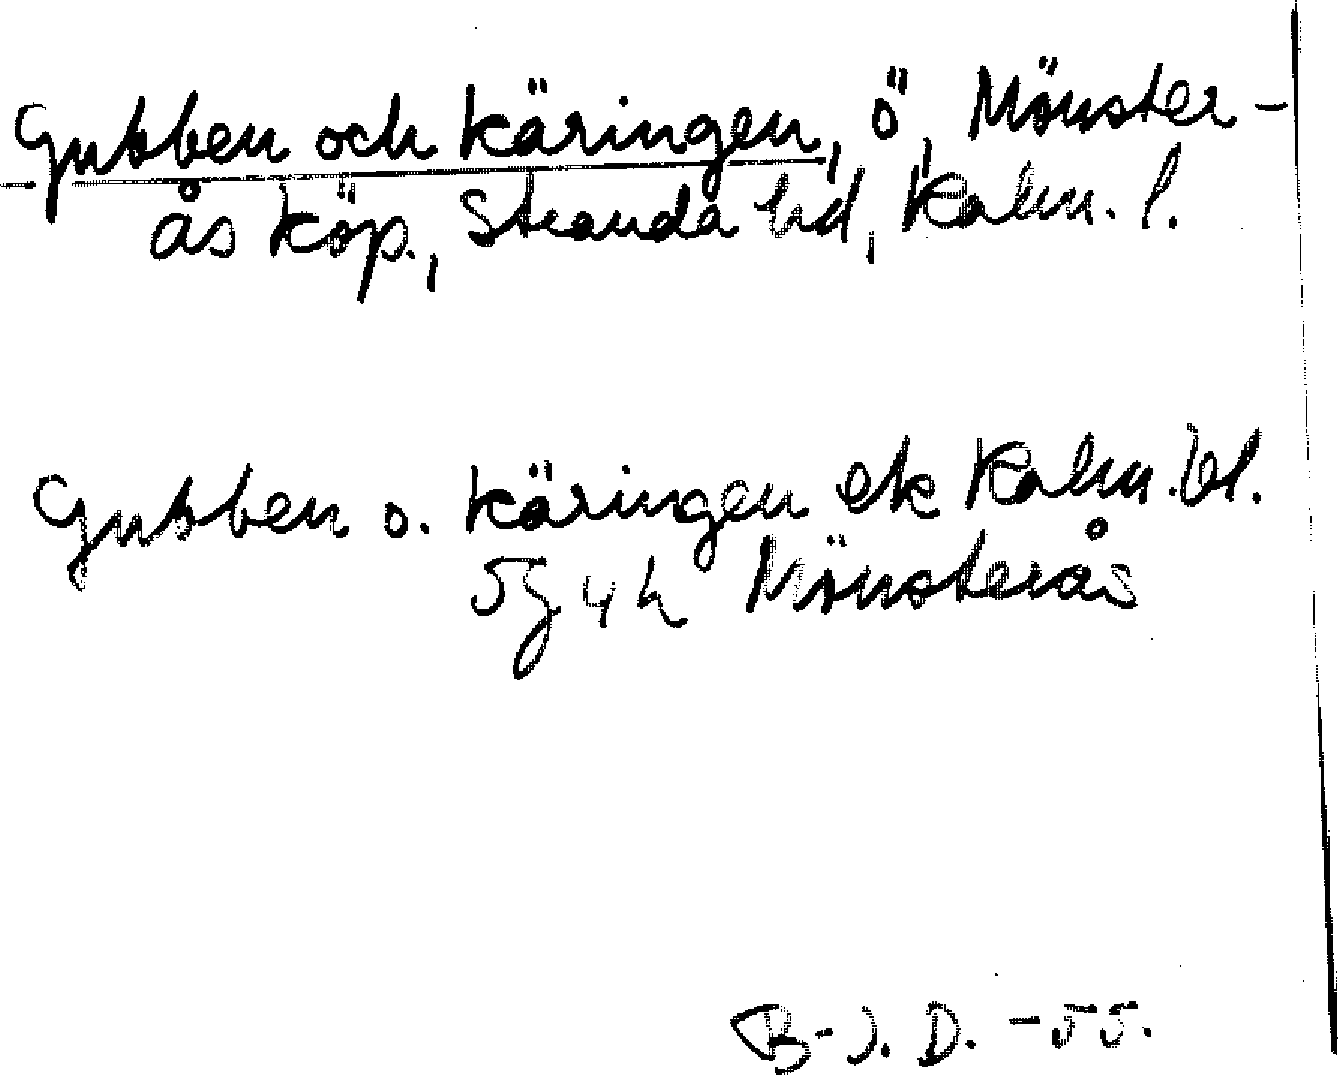 Gubben och käringen, ö, Mönster-
ås köp., Stranda hd, Kalm. l.
Gubben o. käringen ek Kalm. bl.
5g 4h Mönsterås
B-J. D. -55.